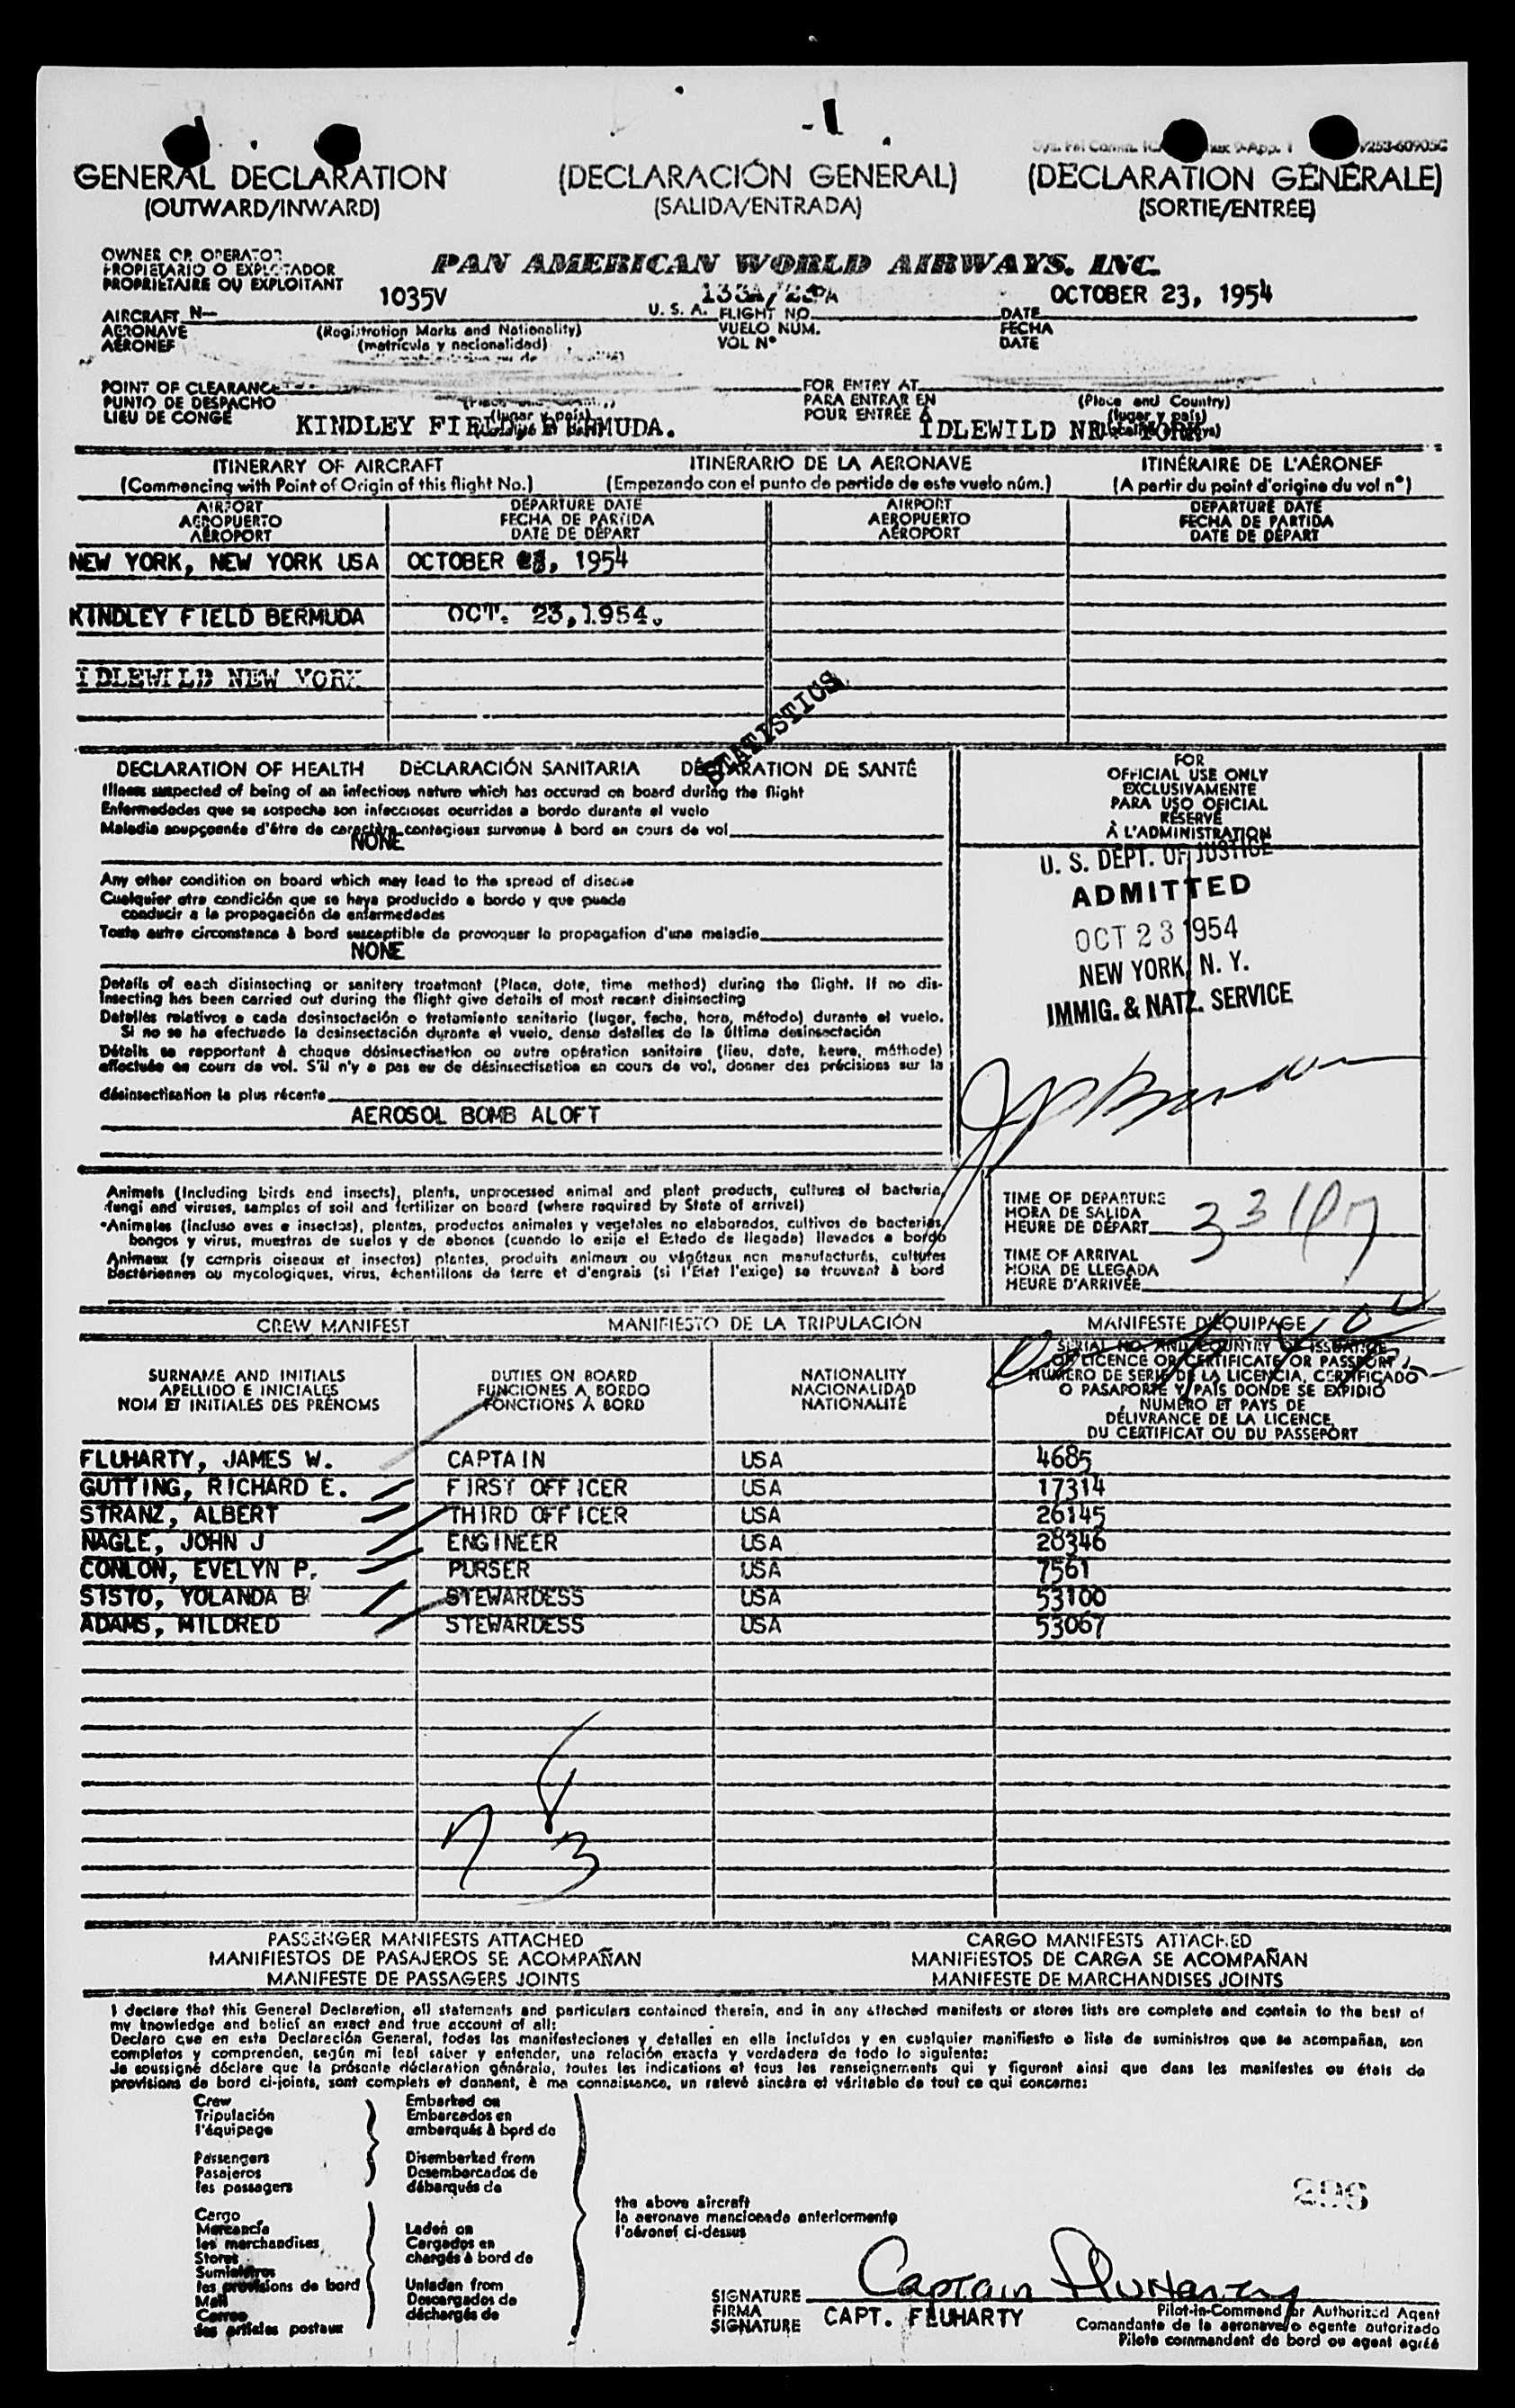 - 1
GENERAL DECLARATION (DECLARACIÓN GENERAL) (DÉCLARATION GÉNÉRALE)
(OUTWARD/INWARD) (SALIDA/ENTRADA) (SORTIE/ENTRÉE)
OWNER OR OPERATOR
PROPIETARIO O EXPLOTADOR
PROPRIÉTAIRE OU EXPLOITANT
PAN AMERICAN WORLD AIRWAYS. INC.
AIRCRAFT N— 1035V U. S. A. FLIGHT NO. DATE OCTOBER 23, 1954
AERONAVE (Registration Marks and Nationality) VUELO NÚM. FECHA
AÉRONEF (matrícula y nacionalidad) VOL Nº DATE
POINT OF CLEARANCE FOR ENTRY AT
PUNTO DE DESPACHO PARA ENTRAR EN (Place and Country)
LIEU DE CONGÉ (lugar y país) POUR ENTRÉE À (lugar y país)
KINDLEY FIELD, BERMUDA. IDLEWILD NEW YORK
ITINERARY OF AIRCRAFT ITINERARIO DE LA AERONAVE ITINÉRAIRE DE L'AÉRONEF
(Commencing with Point of Origin of this flight No.) (Empezando con el punto de partida de este vuelo núm.) (A partir du point d'origine du vol nº)
AIRPORT DEPARTURE DATE AIRPORT DEPARTURE DATE
AEROPUERTO FECHA DE PARTIDA AEROPUERTO FECHA DE PARTIDA
AÉROPORT DATE DE DÉPART AÉROPORT DATE DE DÉPART
NEW YORK, NEW YORK USA OCTOBER 23, 1954
KINDLEY FIELD BERMUDA OCT. 23,1954.
IDLEWILD NEW YORK
STATISTICS
DECLARATION OF HEALTH DECLARACIÓN SANITARIA DÉCLARATION DE SANTÉ
Illness suspected of being of an infectious nature which has occured on board during the flight
Enfermedades que se sospecha son infecciosas ocurridas a bordo durante el vuelo
Maladie soupçonnée d'être de caractère contagieux survenue à bord en cours de vol
NONE
Any other condition on board which may lead to the spread of disease
Cualquier otra condición que se haya producido a bordo y que pueda
conducir a la propagación de enfermedades
Toute autre circonstance à bord susceptible de provoquer la propagation d'une maladie
NONE
Details of each disinsecting or sanitary treatment (Place, date, time method) during the flight. If no dis-
insecting has been carried out during the flight give details of most recent disinsecting
Detalles relativos a cada desinsectación o tratamiento sanitario (lugar, fecha, hora, método) durante el vuelo.
Si no se ha efectuado la desinsectación durante el vuelo, dense detalles de la última desinsectación
Détails se rapportant à chaque désinsectisation ou autre opération sanitaire (lieu, date, heure, méthode)
effectuée en cours de vol. S'il n'y a pas eu de désinsectisation en cours de vol, donner des précisions sur la
désinsectisation la plus récente
AEROSOL BOMB ALOFT
FOR
OFFICIAL USE ONLY
EXCLUSIVAMENTE
PARA USO OFICIAL
RÉSERVÉ
À L'ADMINISTRATION
U. S. DEPT. OF JUSTICE
ADMITTED
OCT 23 1954
NEW YORK, N. Y.
IMMIG. & NATZ. SERVICE
Animals (Including birds and insects), plants, unprocessed animal and plant products, cultures of bacteria,
fungi and viruses, samples of soil and fertilizer on board (where required by State of arrival)
Animales (incluso aves e insectos), plantas, productos animales y vegetales no elaborados, cultivos de bacterias,
hongos y virus, muestras de suelos y de abonos (cuando lo exija el Estado de llegada) llevados a bordo
Animaux (y compris oiseaux et insectos) plantes, produits animaux ou végétaux non manufacturés, cultures
bactériennes ou mycologiques, virus, échantillons de terre et d'engrais (si l'État l'exige) se trouvant à bord
TIME OF DEPARTURE
HORA DE SALIDA
HEURE DE DÉPART
TIME OF ARRIVAL
HORA DE LLEGADA
HEURE D'ARRIVÉE
CREW MANIFEST MANIFIESTO DE LA TRIPULACIÓN MANIFESTE D'ÉQUIPAGE
SURNAME AND INITIALS
APELLIDO E INICIALES
NOM ET INITIALES DES PRÉNOMS
DUTIES ON BOARD
FUNCIONES A BORDO
FONCTIONS À BORD
NATIONALITY
NACIONALIDAD
NATIONALITÉ
SERIAL NO. AND COUNTRY OF ISSUANCE
OF LICENCE OR CERTIFICATE OR PASSPORT
NÚMERO DE SERIE DE LA LICENCIA, CERTIFICADO
O PASAPORTE Y PAÍS DONDE SE EXPIDIÓ
NUMÉRO ET PAYS DE
DÉLIVRANCE DE LA LICENCE,
DU CERTIFICAT OU DU PASSEPORT
FLUHARTY, JAMES W. CAPTAIN USA 4685
GUTTING, RICHARD E. FIRST OFFICER USA 17314
STRANZ, ALBERT THIRD OFFICER USA 26145
NAGLE, JOHN J ENGINEER USA 28346
CONLON, EVELYN P. PURSER USA 7561
SISTO, YOLANDA B STEWARDESS USA 53100
ADAMS, MILDRED STEWARDESS USA 53067
7 3
PASSENGER MANIFESTS ATTACHED CARGO MANIFESTS ATTACHED
MANIFIESTOS DE PASAJEROS SE ACOMPAÑAN MANIFIESTOS DE CARGA SE ACOMPAÑAN
MANIFESTE DE PASSAGERS JOINTS MANIFESTE DE MARCHANDISES JOINTS
I declare that this General Declaration, all statements and particulars contained therein, and in any attached manifests or stores lists are complete and contain to the best of
my knowledge and belief an exact and true account of all:
Declaro que en esta Declaración General, todas las manifestaciones y detalles en ella incluídos y en cualquier manifiesto o lista de suministros que se acompañan, son
completos y comprenden, según mi leal saber y entender, una relación exacta y verdadera de todo lo siguiente:
Je soussigné déclare que la présente déclaration générale, toutes les indications et tous les renseignements qui y figurent ainsi que dans les manifestes ou états de
provisions de bord ci-joints, sont complets et donnent, à ma connaissance, un relevé sincère et véritable de tout ce qui concerne:
Crew Embarked on
Tripulación Embarcados en
l'équipage embarqués à bord de
Passengers Disembarked from
Pasajeros Desembarcados de
les passagers débarqués de
the above aircraft
la aeronave mencionada anteriormente
l'aéronef ci-dessus
Cargo
Mercancía Laden on
les marchandises Cargados en
Stores chargés à bord de
Suministros
les provisions de bord Unladen from
Mail Descargados de
Correo déchargés de
des articles postaux
SIGNATURE Captain Fluharty
FIRMA CAPT. FLUHARTY
SIGNATURE
Pilot-in-Command or Authorized Agent
Comandante de la aeronave o agente autorizado
Pilote commandant de bord ou agent agréé